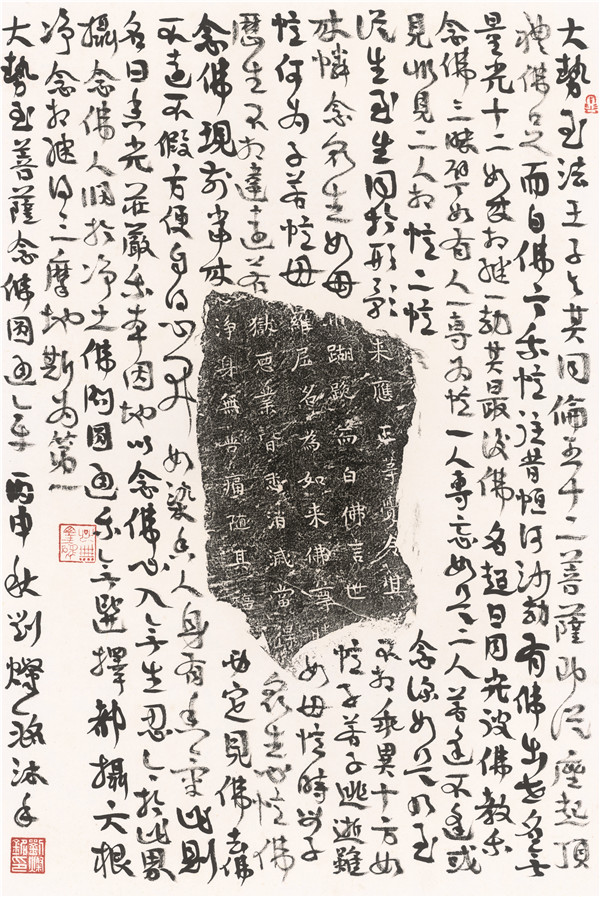 大勢至法王子与其同倫五十二菩薩即從座起頂
禮佛足而白佛言我憶往昔恒河沙劫有佛出世名無
量光十二如來相繼一劫其最後佛名超日月光彼佛教我
念佛三昧譬如有人一專為憶一人專忘如是二人若逢不逢或
見非見二人相憶二憶念深如是乃至
從生至生同於形影不相乖異十方如
來憐念眾生如母憶子若子逃逝雖
憶何為子若憶母如母憶時母子
歷生不相違遠若眾生心憶佛
念佛現前當來必定見佛去佛
不遠不假方便自得心開如染香人身有香氣此則
名曰香光莊嚴我本因地以念佛心入無生忍今於此界
攝念佛人歸於净土佛問圓通我無選擇都攝六根
净念相繼得三摩地斯為第一
大勢至菩薩念佛圓通章 丙申秋劉燦銘沐手
來應正等覺今
跪而白佛言世
羅尼名為如來佛
獄惡業皆悉消滅當得
淨身無苦痛隨其
劉燦銘印